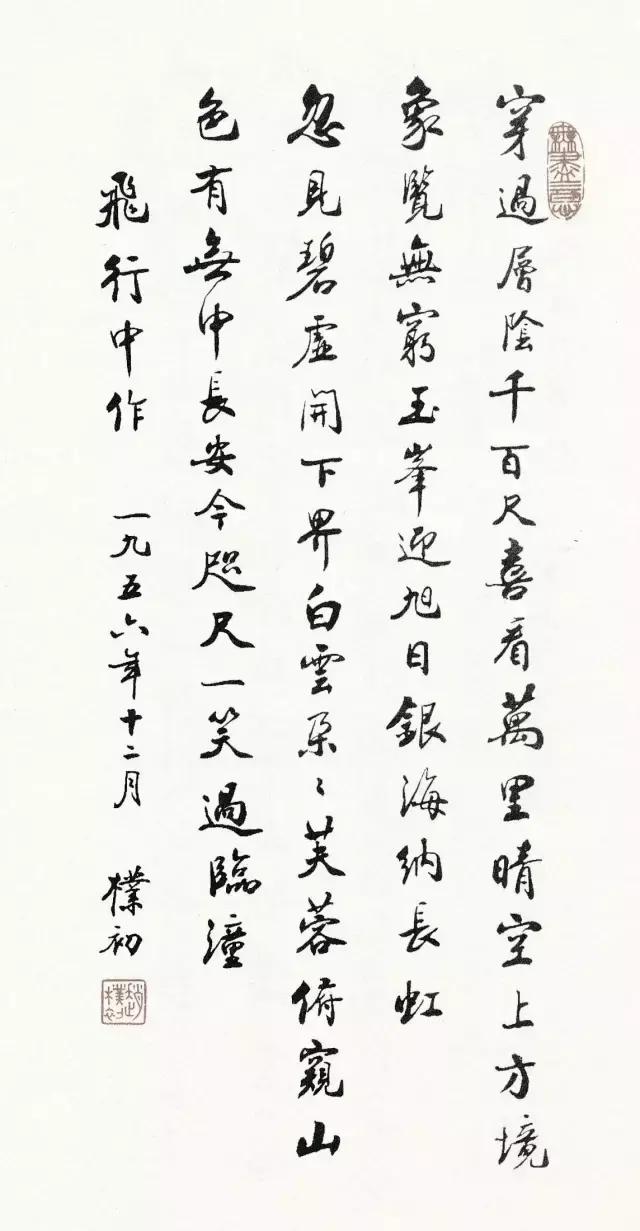 穿過層陰千百尺喜看萬里晴空上方境
象覽無窮玉峯迎旭日銀海納長虹
忽見碧虛開下界白雲朵〻芙蓉俯窺山
色有無中長安今咫尺一笑過臨潼
飛行中作 一九五六年十二月 樸初
無盡意
趙樸初